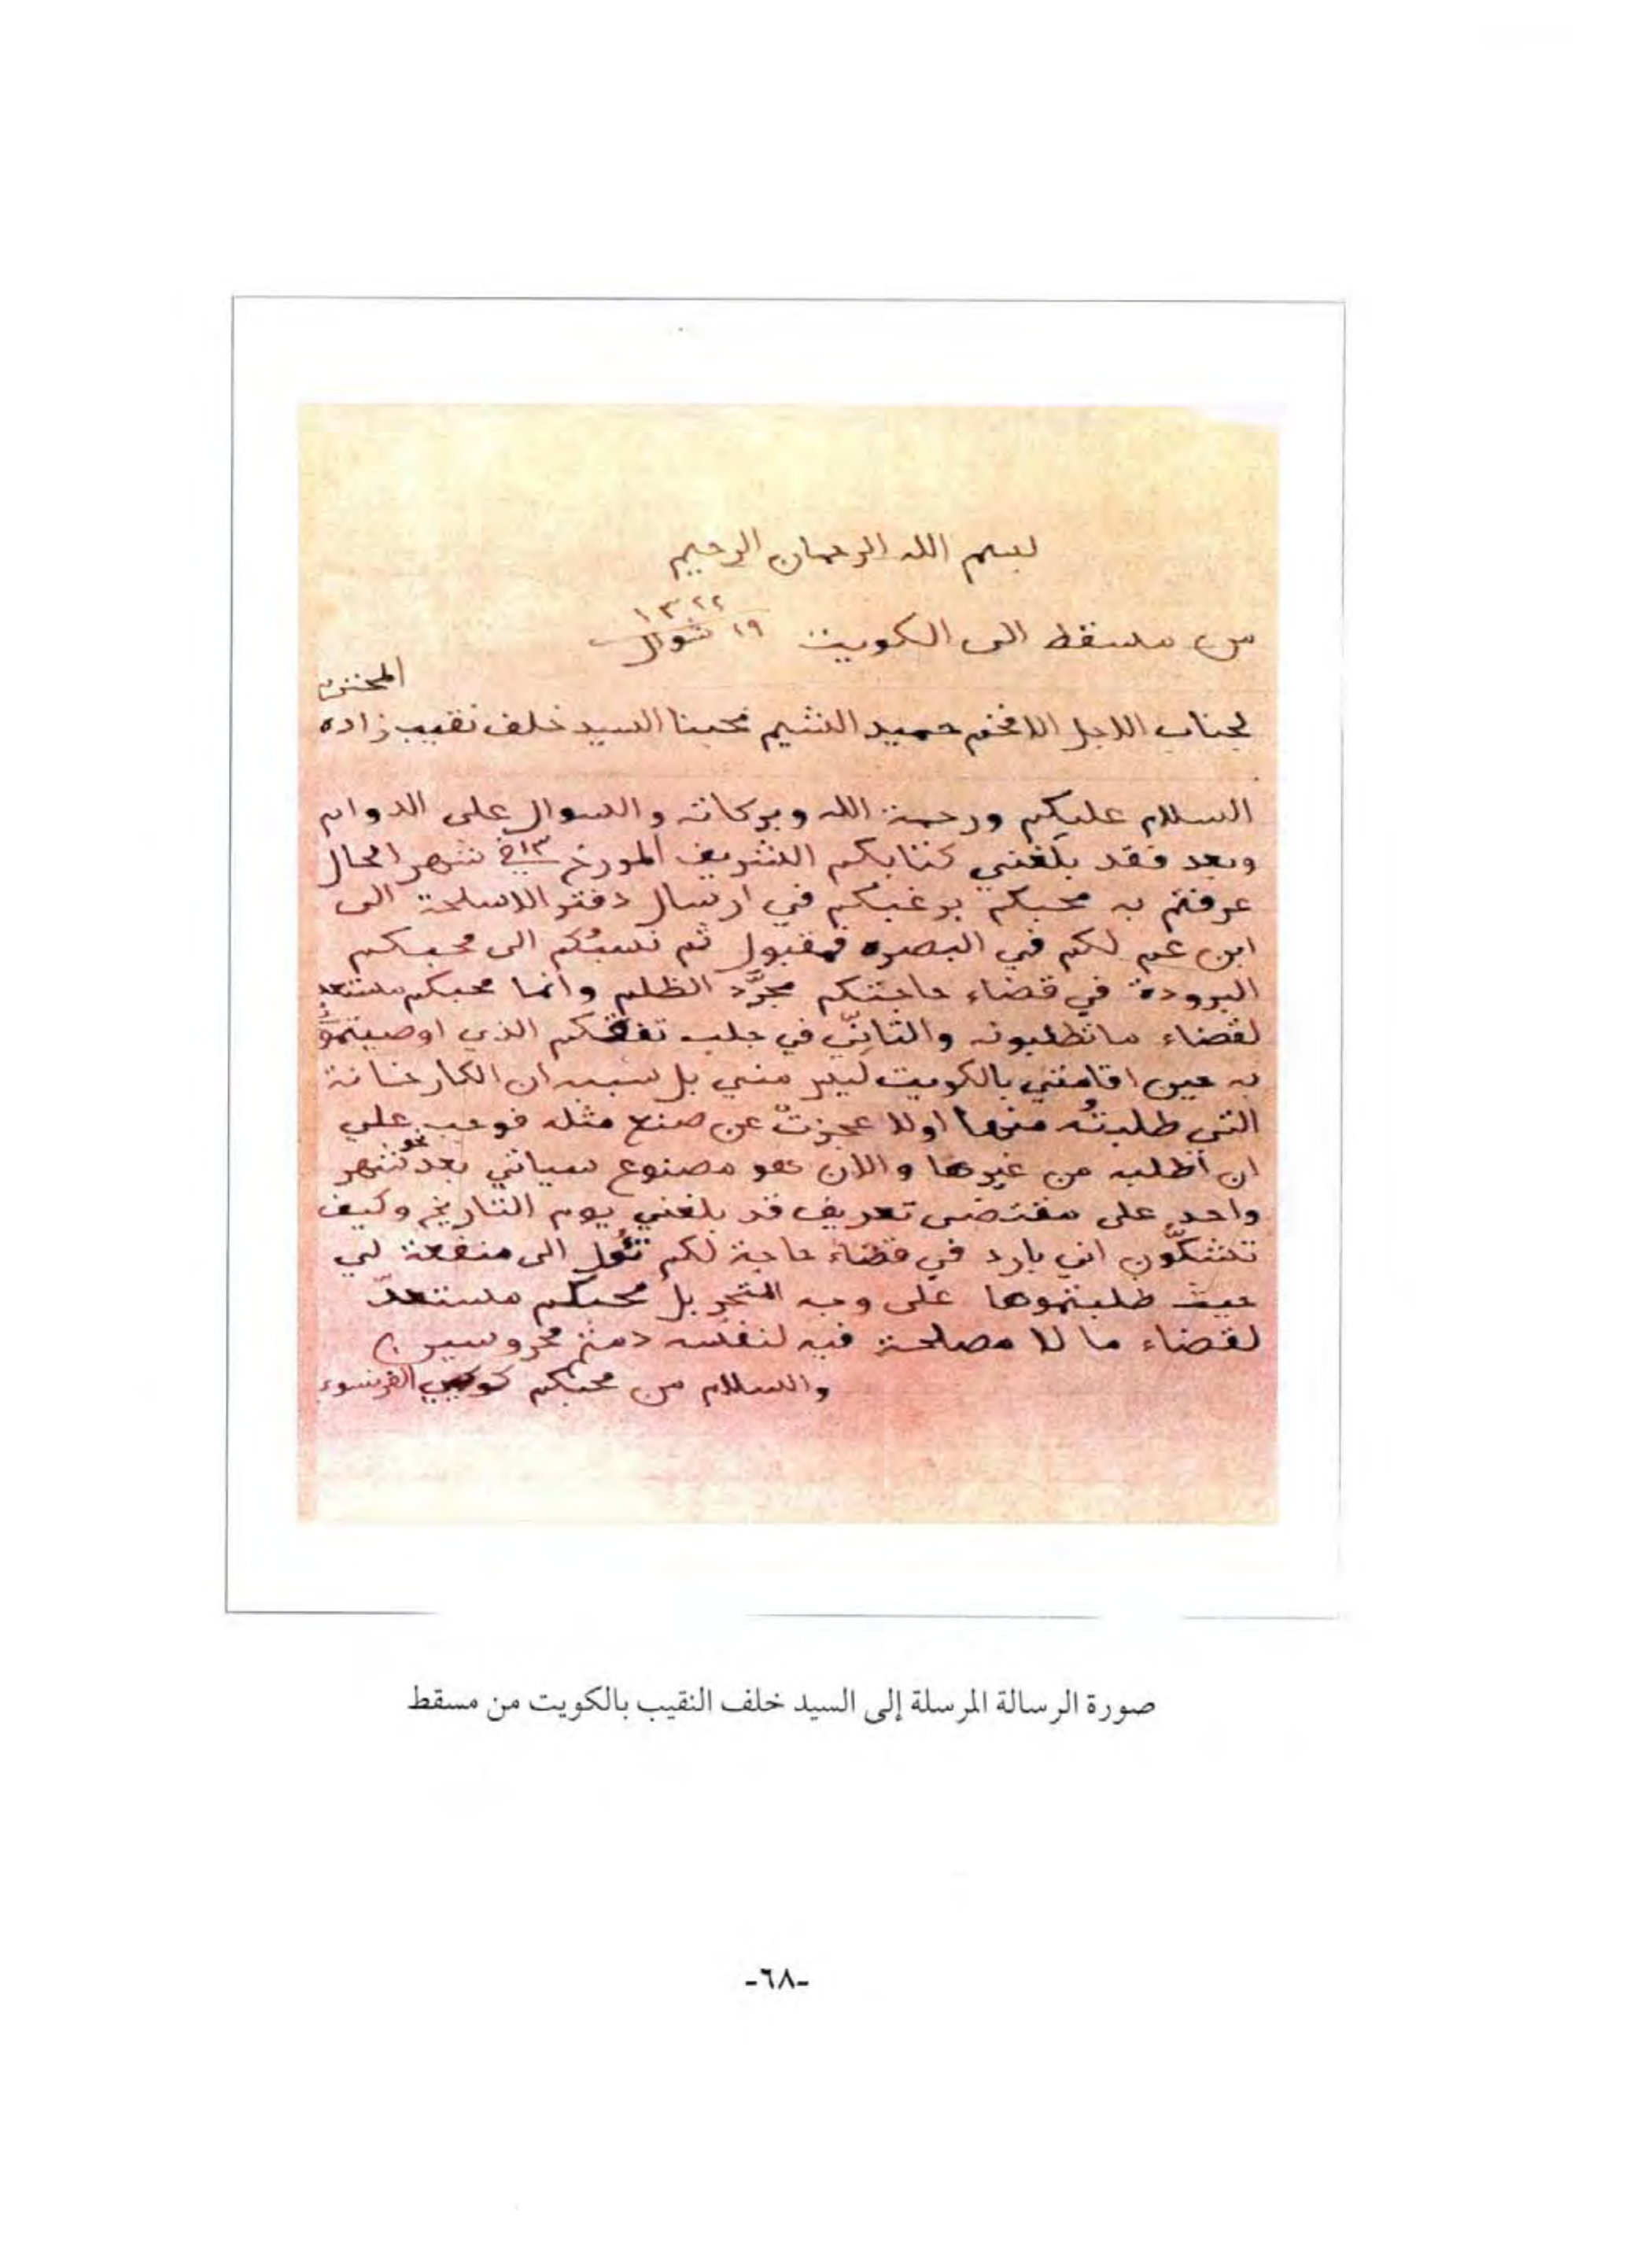 بسم الله الرحمان الرحيم
من مسقط الى الكويت ١٩ شوال ١٣٢٢
المحترم
لجناب الاجل الافخم حميد الشيم محبنا السيد خلف نقيب زاده
السلام عليكم ورحمة الله وبركاته والسوال على الدوام
وبعد فقد بلغني كتابكم الشريف المورخ ١٣ في شهر الحال
عرفتم به محبكم برغبكم في ارسال دفتر الاسلحة الى
ابن عم لكم في البصره فمقبول ثم نسبُكم الى محبكم
البرودة في قضاء حاجتكم مجرَّد الظلم وانما محبكم مستعد
لقضاء ما تطلبونه والتانّي في جلب تفقكم الذي اوصيتموُ
به حين اقامتي بالكويت ليس مني بل سببه ان الكارخانة
التي طلبتُه منها اولا عجزتْ عن صنع مثله فوجب علي
ان أطلبه من غيرها والان هو مصنوع سياتي بعد نحو شهر
واحد على مقتضى تعريف قد بلغني يوم التاريخ وكيف
تشكّون اني بارد في قضاء حاجة لكم تئُول الى منفعة لي
حيث طلبتموها على وجه المتجر بل محبكم مستعدّ
لقضاء ما لا مصلحة فيه لنفسه دمتم محروسين
والسلام من محبكم الفرنسوي
صورة الرسالة المرسلة إلى السيد خلف النقيب بالكويت من مسقط
-٦٨-